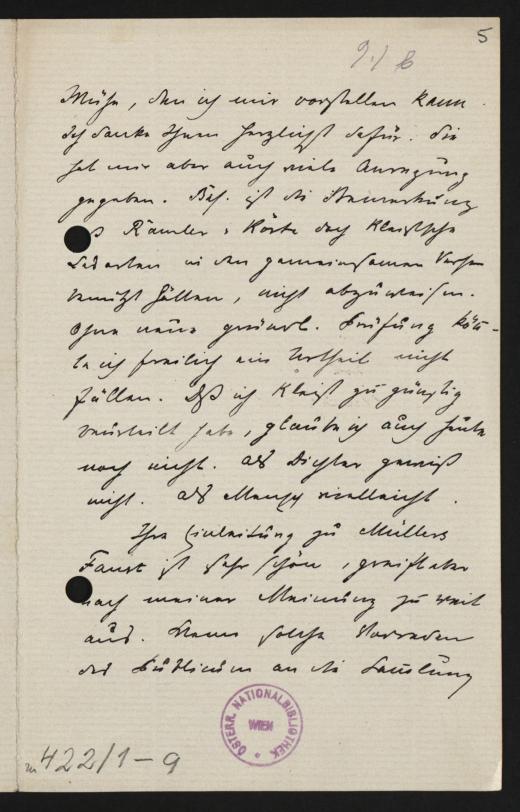 5
9./6
Mühe, den ich mir vorstellen kann.
Ich danke Ihnen herzlichst dafür. Sie
hat mir aber auch viele Anregung
gegeben. Bes. ist die Bemerkung
Ramler u. Körte doch Kleistsche
Lesarten in den gemeinsamen Versen
benützt hätten, nicht abzuweisen.
Ohne neue gründl. Prüfung kön-
te ich freilich ein Urtheil nicht
fällen. Daß ich Kleist zu günstig
beurteilt habe, glaube ich auch heute
noch nicht. Als Dichter gewiß
nicht. Als Mensch vielleicht.
Ihre Einleitung zu Müllers
Faust ist sehr schön, greift aber
nach meiner Meinung zu weit
aus. Wenn solche Vorreden
das Publicum an die
ÖSTERR. NATIONALBIBLIOTHEK
WIEN
422/1-9